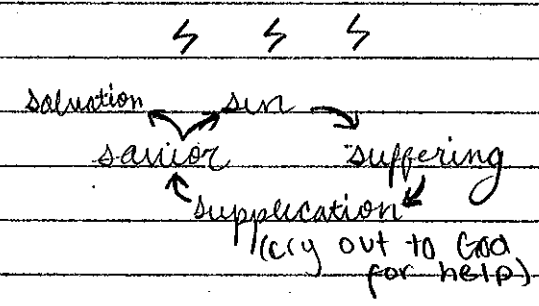 salvation sin
savior suffering
supplication
(cry out to God
for help)